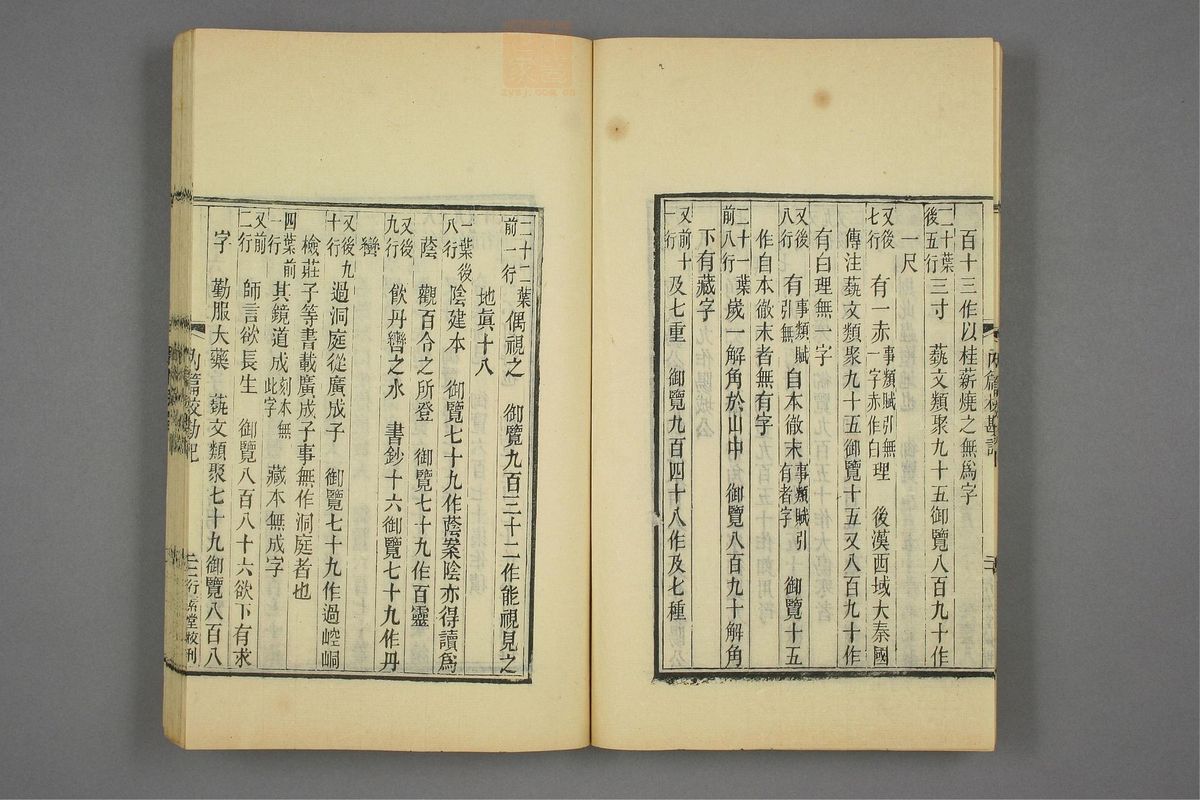 百十三作以桂薪燒之無爲字
二十葉後五行三寸　藝文類聚九十五御覽八百九十作
一尺
又後七行有一赤事類賦引無一字赤作白理　後漢西域大秦國
傳注藝文類聚九十五御覽十五又八百九十作
有白理無一字
又後八行有事類賦引無自本徹末事類賦引有者字　御覽十五
作自本徹末者無有字
二十一葉前八行歲一解角於山中　御覽八百九十解角
下有藏字
又前十一行及七重　御覽九百四十八作及七種
二十二葉前一行偶視之　御覽九百三十二作能視見之
地眞十八
一葉後八行陰建本　御覽七十九作蔭案陰亦得讀爲
蔭　觀百令之所登　御覽七十九作百靈
又後九行飲丹巒之水　書鈔十六御覽七十九作丹
巒
又後九十行過洞庭從廣成子　御覽七十九作過崆峒
檢莊子等書載廣成子事無作洞庭者也
四葉前一行其鏡道成刻本無此字　藏本無成字
又前二行師言欲長生　御覽八百八十六欲下有求
字　勤服大藥　藝文類聚七十九御覽八百八
內篇校勘記
行素堂校刊